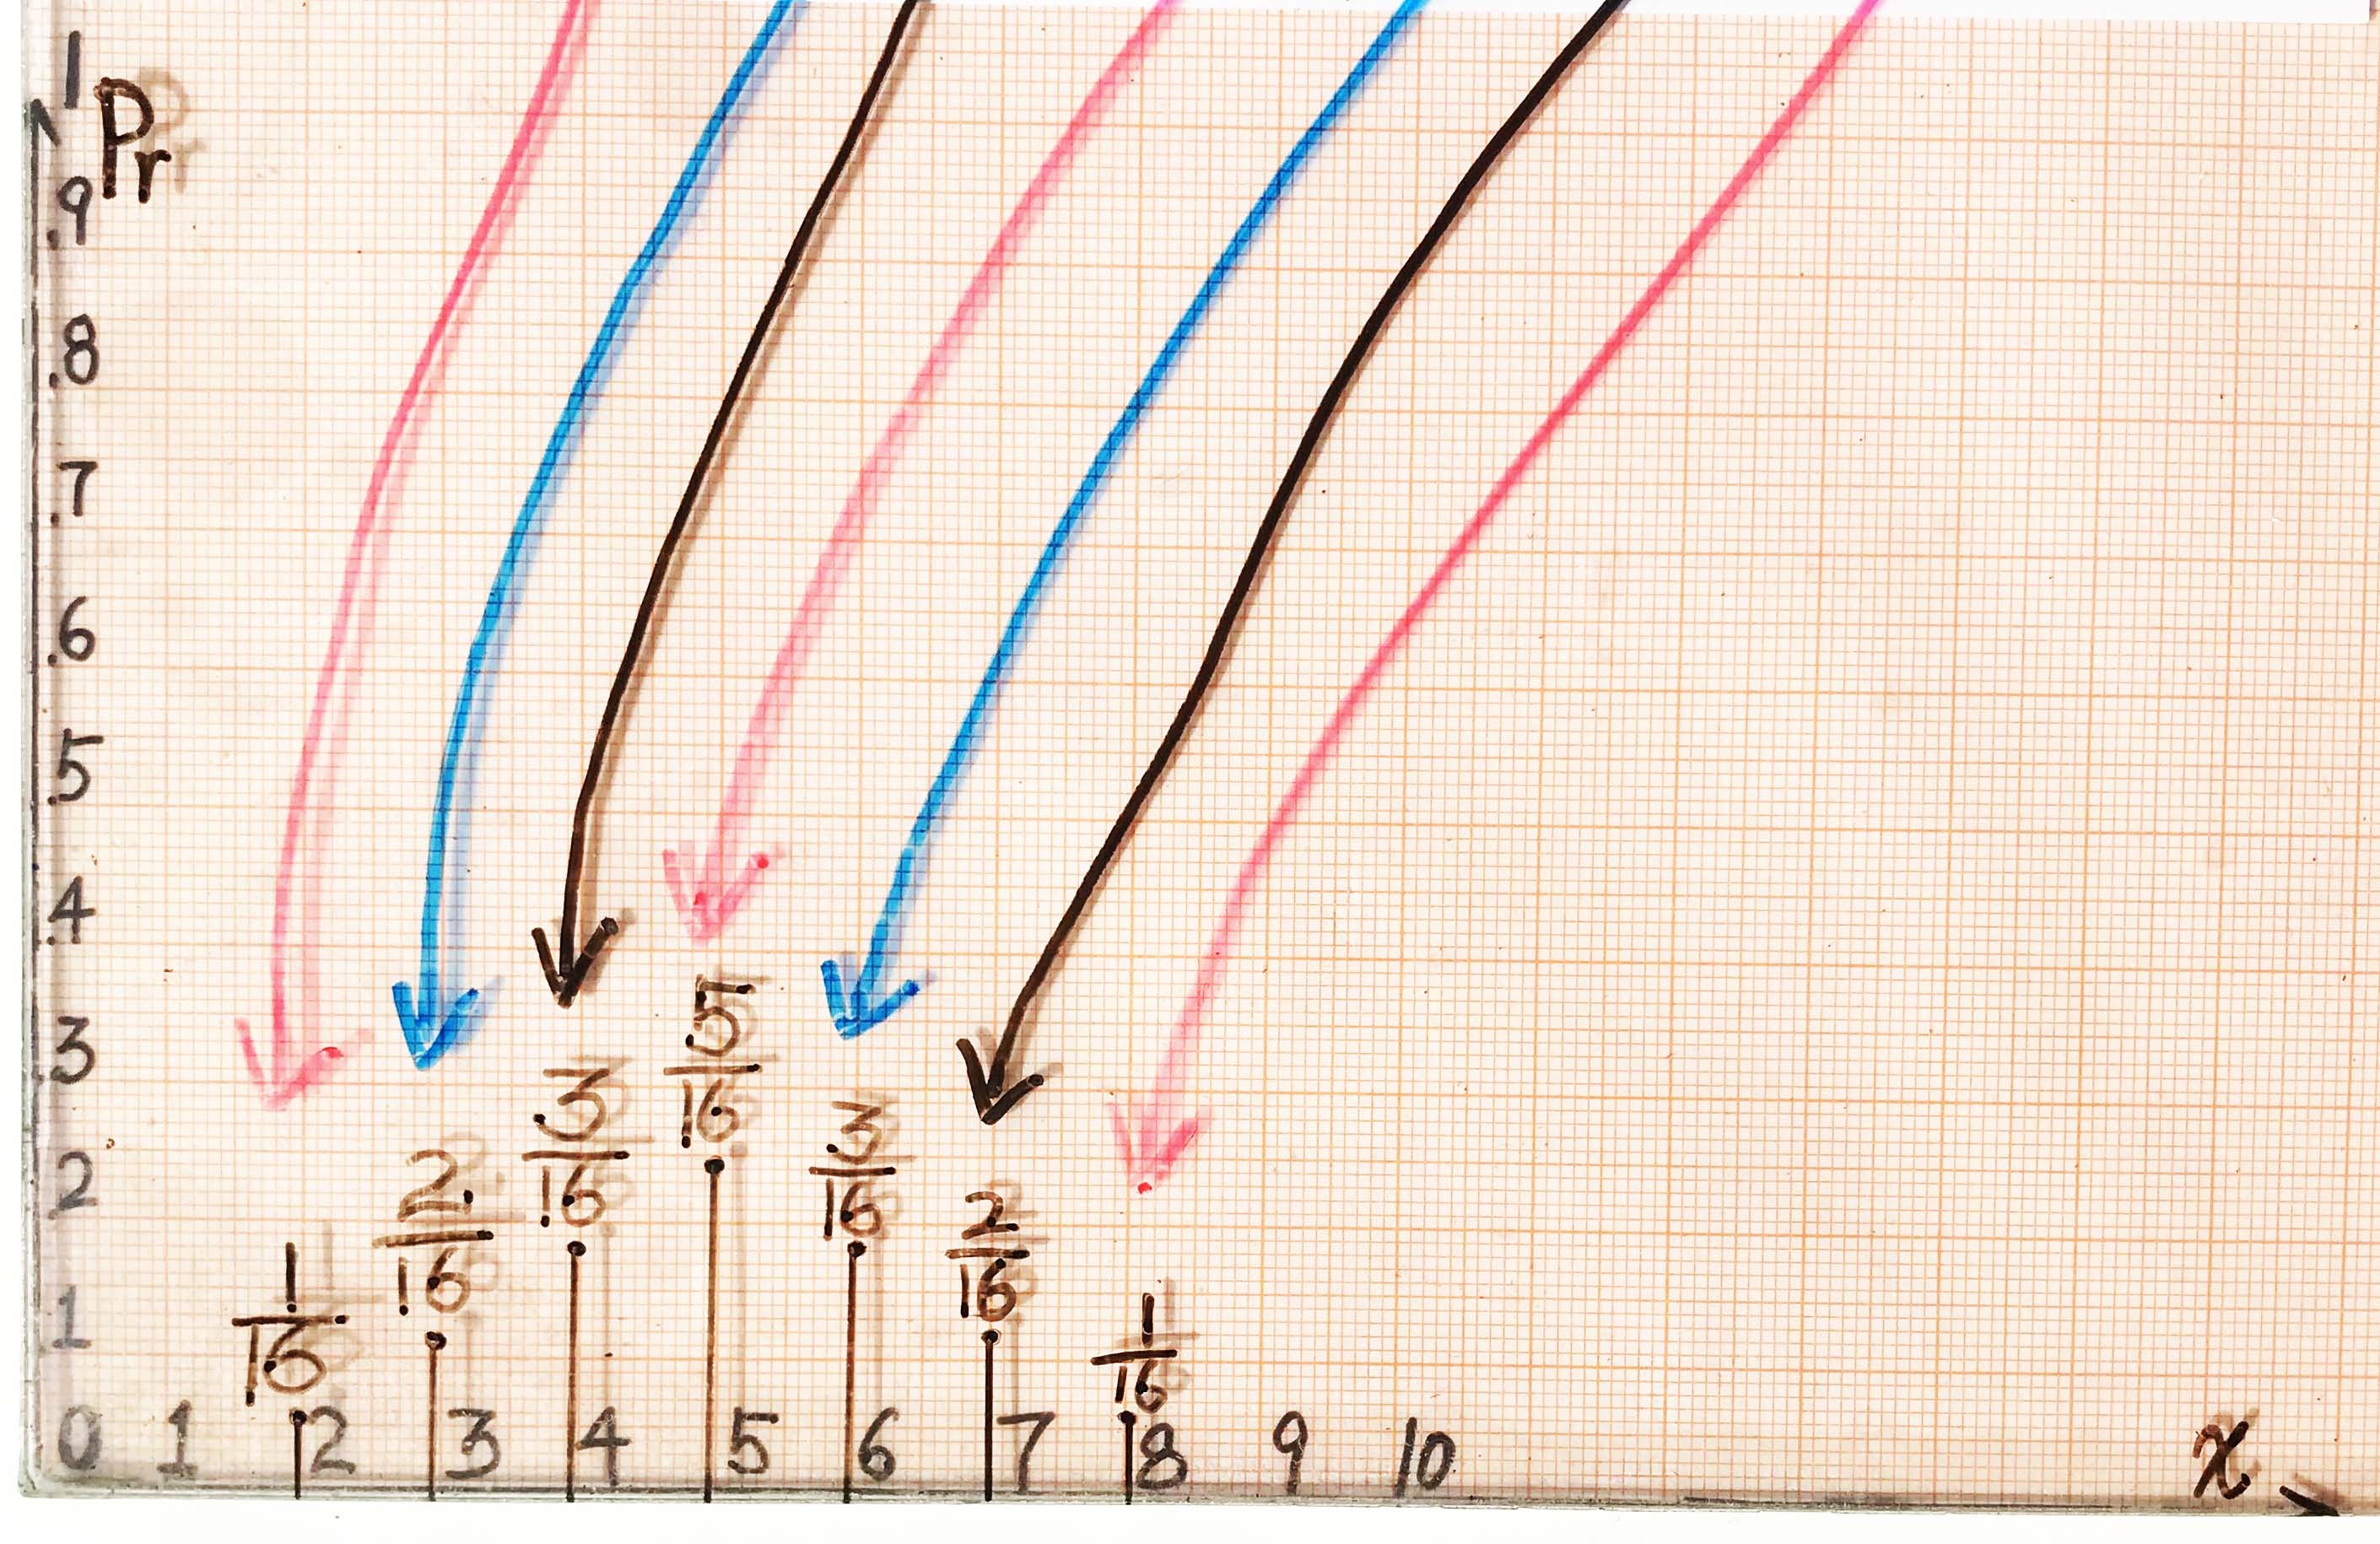 1
Pr
.9
.8
.7
.6
.5
.4
.3
.2
.1
1/16
2/16
3/16
5/16
3/16
2/16
1/16
0 1 2 3 4 5 6 7 8 9 10 x